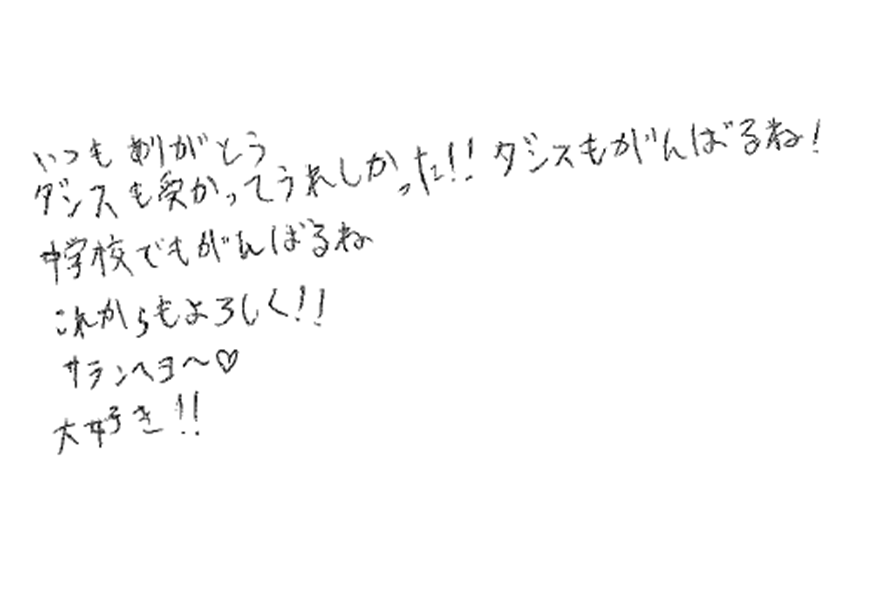 いつもありがとう
ダンスも受かってうれしかった!! ダンスもがんばるね!
中学校でもがんばるね
これからもよろしく!!
サランヘヨ〜♡
大好き!!